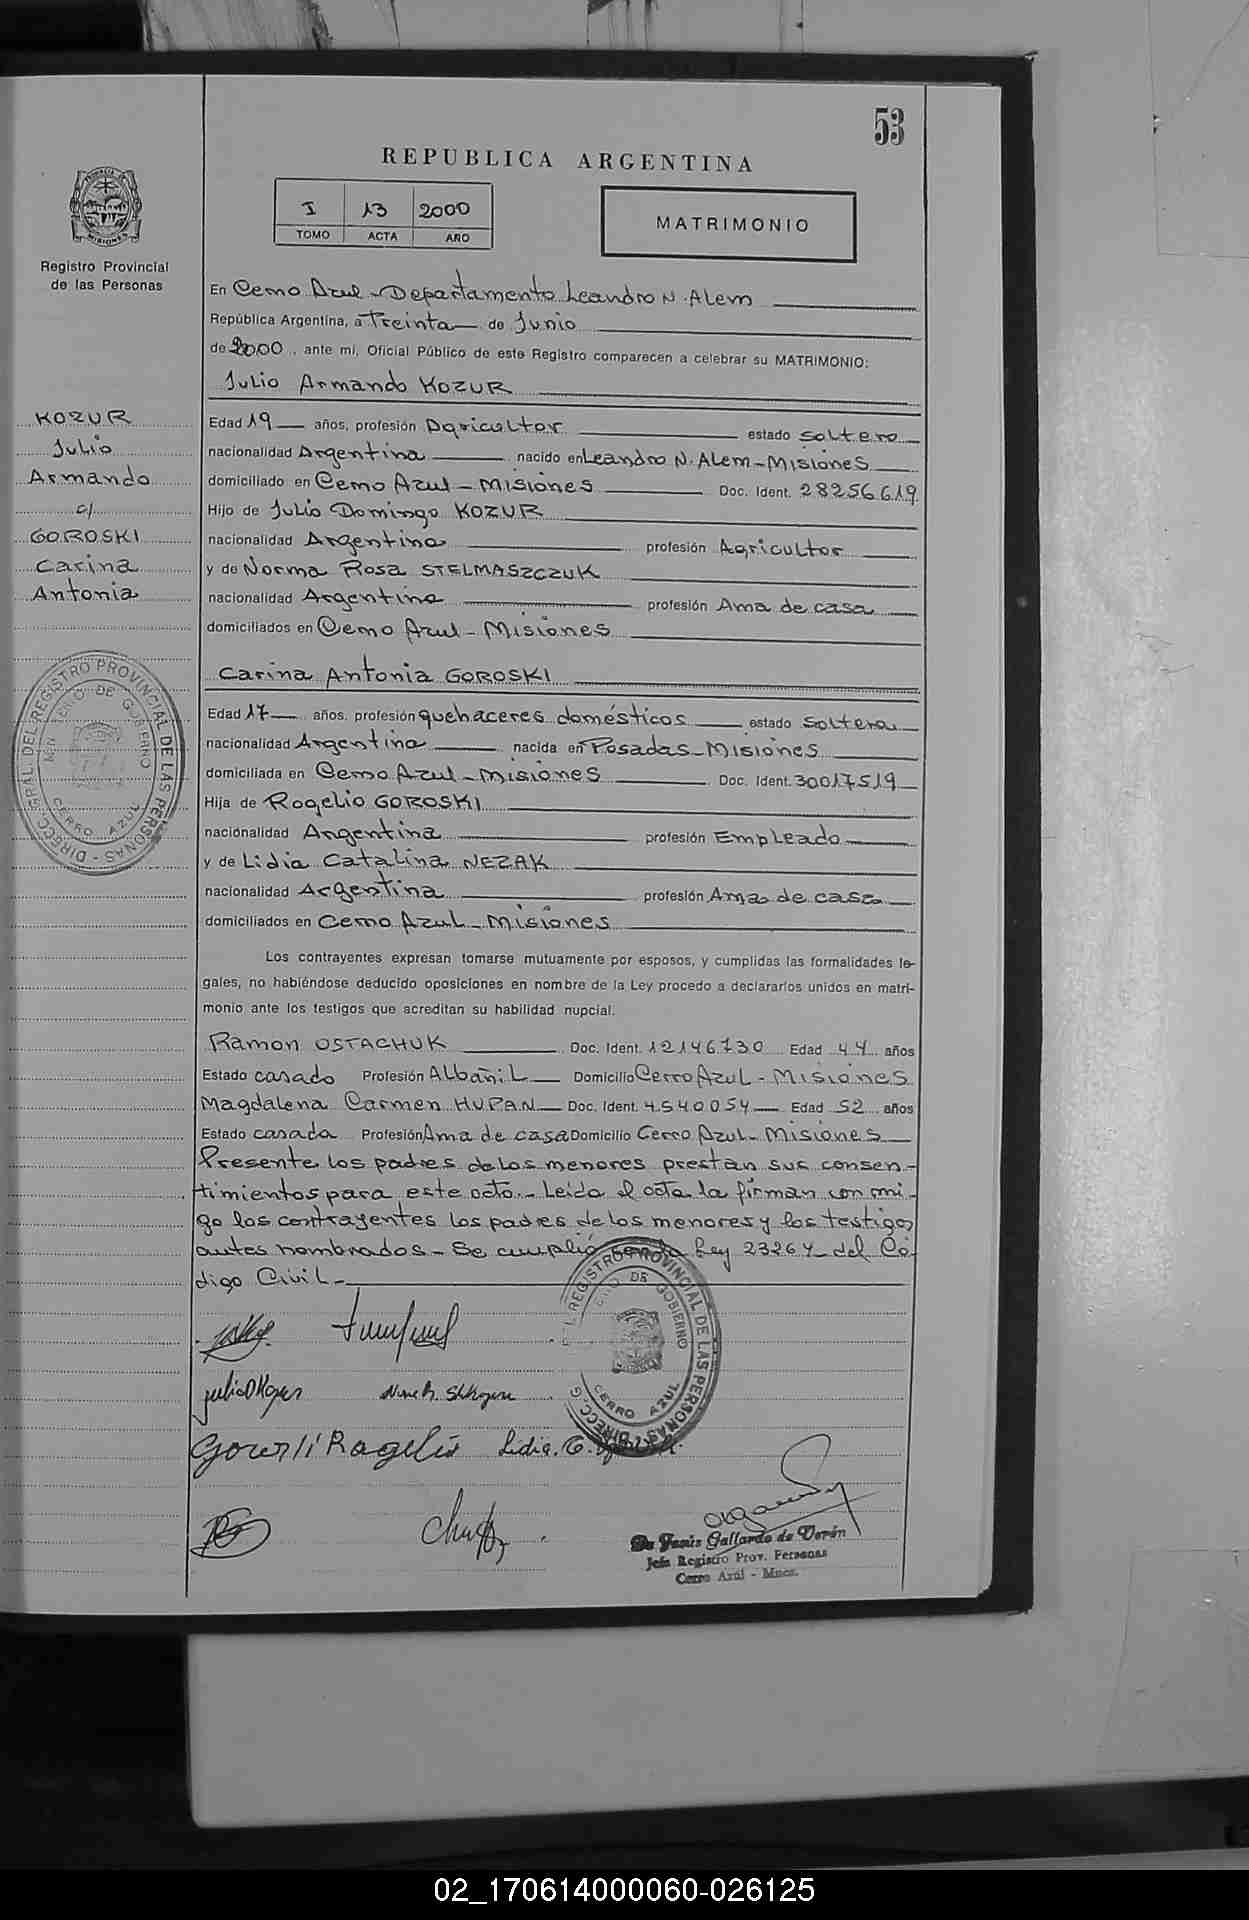 53
REPUBLICA ARGENTINA
I 13 2000
TOMO ACTA AÑO
MATRIMONIO
PROVINCIA DE MISIONES
Registro Provincial
de las Personas
En Cerro Azul - Departamento Leandro N. Alem
República Argentina, a Treinta de Junio
de 2000, ante mí, Oficial Público de este Registro comparecen a celebrar su MATRIMONIO:
Julio Armando KOZUR
KOZUR
Julio
Armando
c/
GOROSKI
Carina
Antonia
Edad 19 años, profesión Agricultor estado soltero
nacionalidad Argentina nacido en Leandro N. Alem - Misiones
domiciliado en Cerro Azul - Misiones Doc. Ident. 28256619
Hijo de Julio Domingo KOZUR
nacionalidad Argentina profesión Agricultor
y de Norma Rosa STELMASZCZUK
nacionalidad Argentina profesión Ama de casa
domiciliados en Cerro Azul - Misiones
Carina Antonia GOROSKI
Edad 17 años, profesión quehaceres domésticos estado soltera
nacionalidad Argentina nacida en Posadas - Misiones
domiciliada en Cerro Azul - Misiones Doc. Ident. 30017519
Hija de Rogelio GOROSKI
nacionalidad Argentina profesión Empleado
y de Lidia Catalina NEZAK
nacionalidad Argentina profesión Ama de casa
domiciliados en Cerro Azul - Misiones
DIRECC. GRAL. DEL REGISTRO PROVINCIAL DE LAS PERSONAS
DE GOBIERNO
CERRO AZUL
Los contrayentes expresan tomarse mutuamente por esposos, y cumplidas las formalidades le-
gales, no habiéndose deducido oposiciones en nombre de la Ley procedo a declararlos unidos en matri-
monio ante los testigos que acreditan su habilidad nupcial.
Ramon OSTACHUK Doc. Ident. 12146730 Edad 44 años
Estado casado Profesión Albañil Domicilio Cerro Azul - Misiones
Magdalena Carmen HUPAN Doc. Ident. 4.540054 Edad 52 años
Estado casada Profesión Ama de casa Domicilio Cerro Azul - Misiones
Presente los padres de los menores prestan sus consen-
timientos para este acto. - Leida el acta la firman con mi-
go los contrayentes los padres de los menores y los testigos
antes nombrados - Se cumplió Ley 23264 del Có-
digo Civil -
REGISTRO PROVINCIAL DE LAS PERSONAS
DE GOBIERNO
CERRO AZUL
DIRECC. G
julio D Kozur
Goroski Rogelio Lidia. C.
Jesús Gallardo de Verón
Jefa Registro Prov. Personas
Cerro Azul - Mnes.
02_170614000060-026125